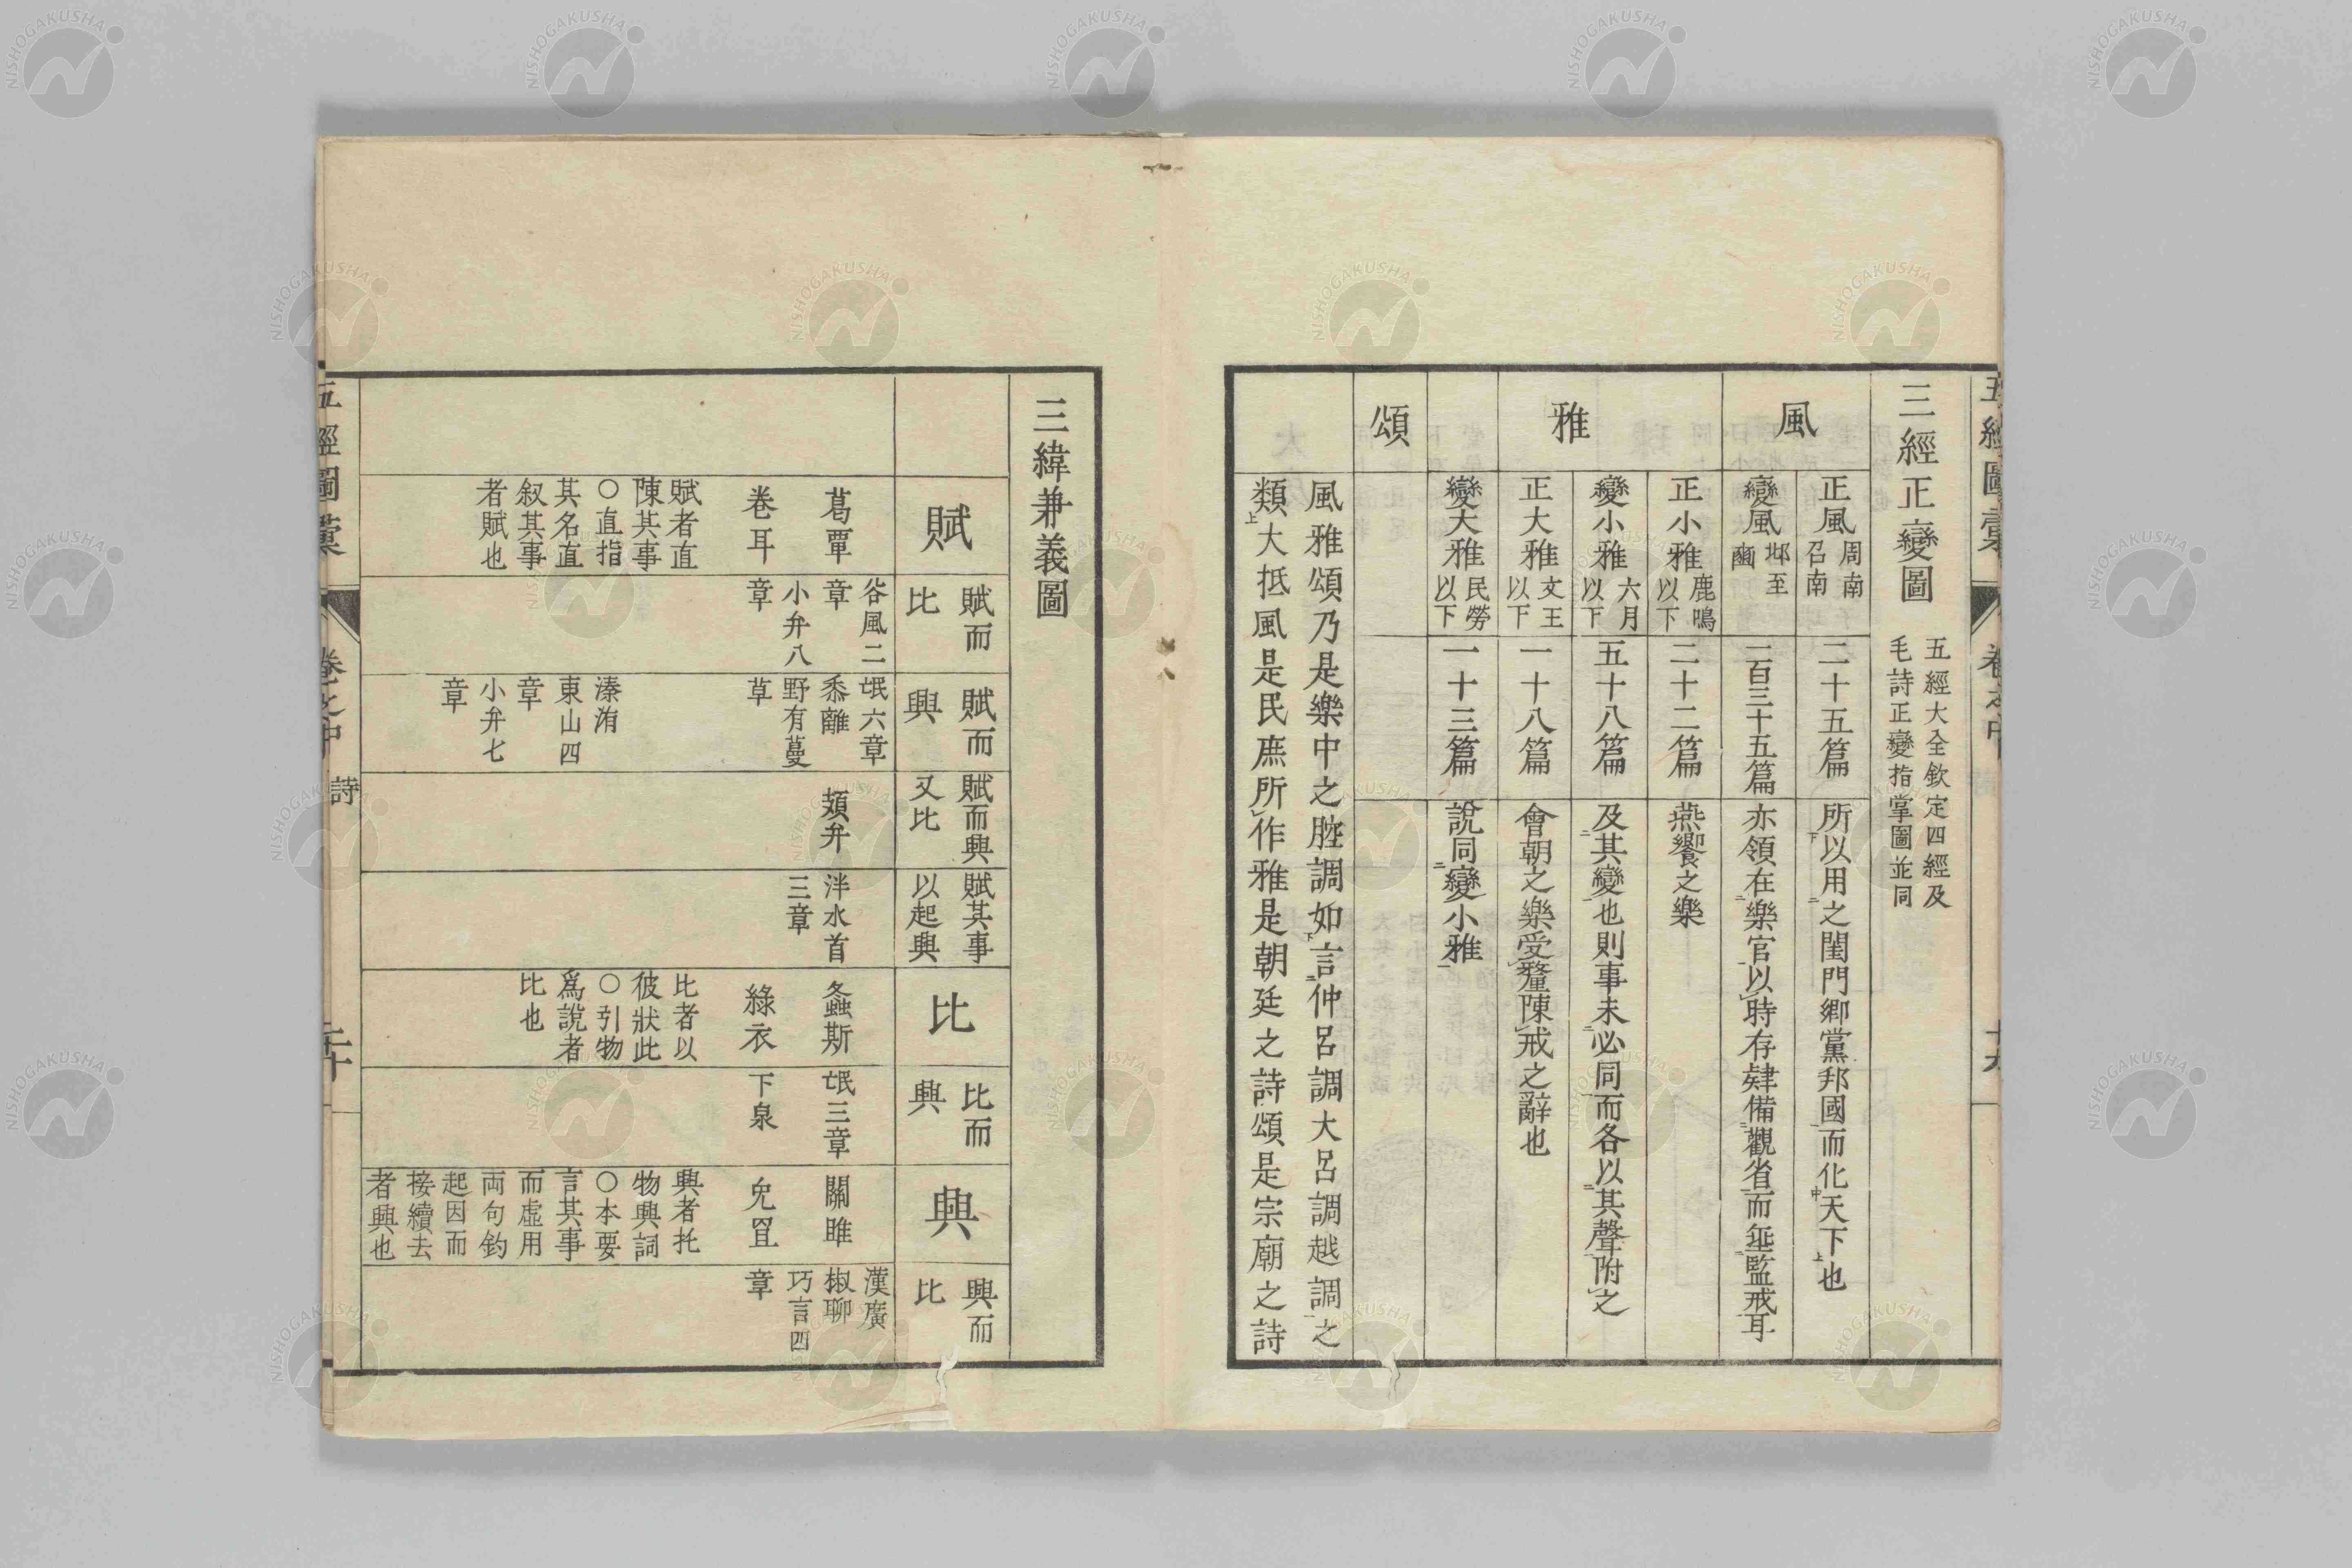 五經圖彙 卷之中 十九
三經正變圖
五經大全欽定四經及
毛詩正變指掌圖並同
風
正風 周南 召南
二十五篇
所以用之閨門鄉黨邦國而化天下也
變風 邶至豳
一百三十五篇
亦領在樂官以時存肄備觀省而垂監戒耳
雅
正小雅 鹿鳴以下
二十二篇
燕饗之樂
變小雅 六月以下
五十八篇
及其變也則事未必同而各以其聲附之
正大雅 文王以下
一十八篇
會朝之樂受釐陳戒之辭也
變大雅 民勞以下
一十三篇
說同變小雅
頌
風雅頌乃是樂中之腔調如言仲呂調大呂調越調之
類大抵風是民庶所作雅是朝廷之詩頌是宗廟之詩
三緯兼義圖
賦
葛覃
卷耳
賦者直
陳其事
○直指
其名直
叙其事
者賦也
賦而
比
谷風二
章
小弁八
章
賦而
興
氓六章
黍離
野有蔓
草
溱洧
東山四
章
小弁七
章
賦而興
又比
頍弁
賦其事
以起興
泮水首
三章
比
螽斯
綠衣
比者以
彼狀此
○引物
爲說者
比也
比而
興
氓三章
下泉
興
關雎
兔罝
興者托
物興詞
○本要
言其事
而虛用
兩句鈎
起因而
接續去
者興也
興而
比
漢廣
椒聊
巧言四
章
五經圖彙 卷之中 詩 二十
NISHOGAKUSHA